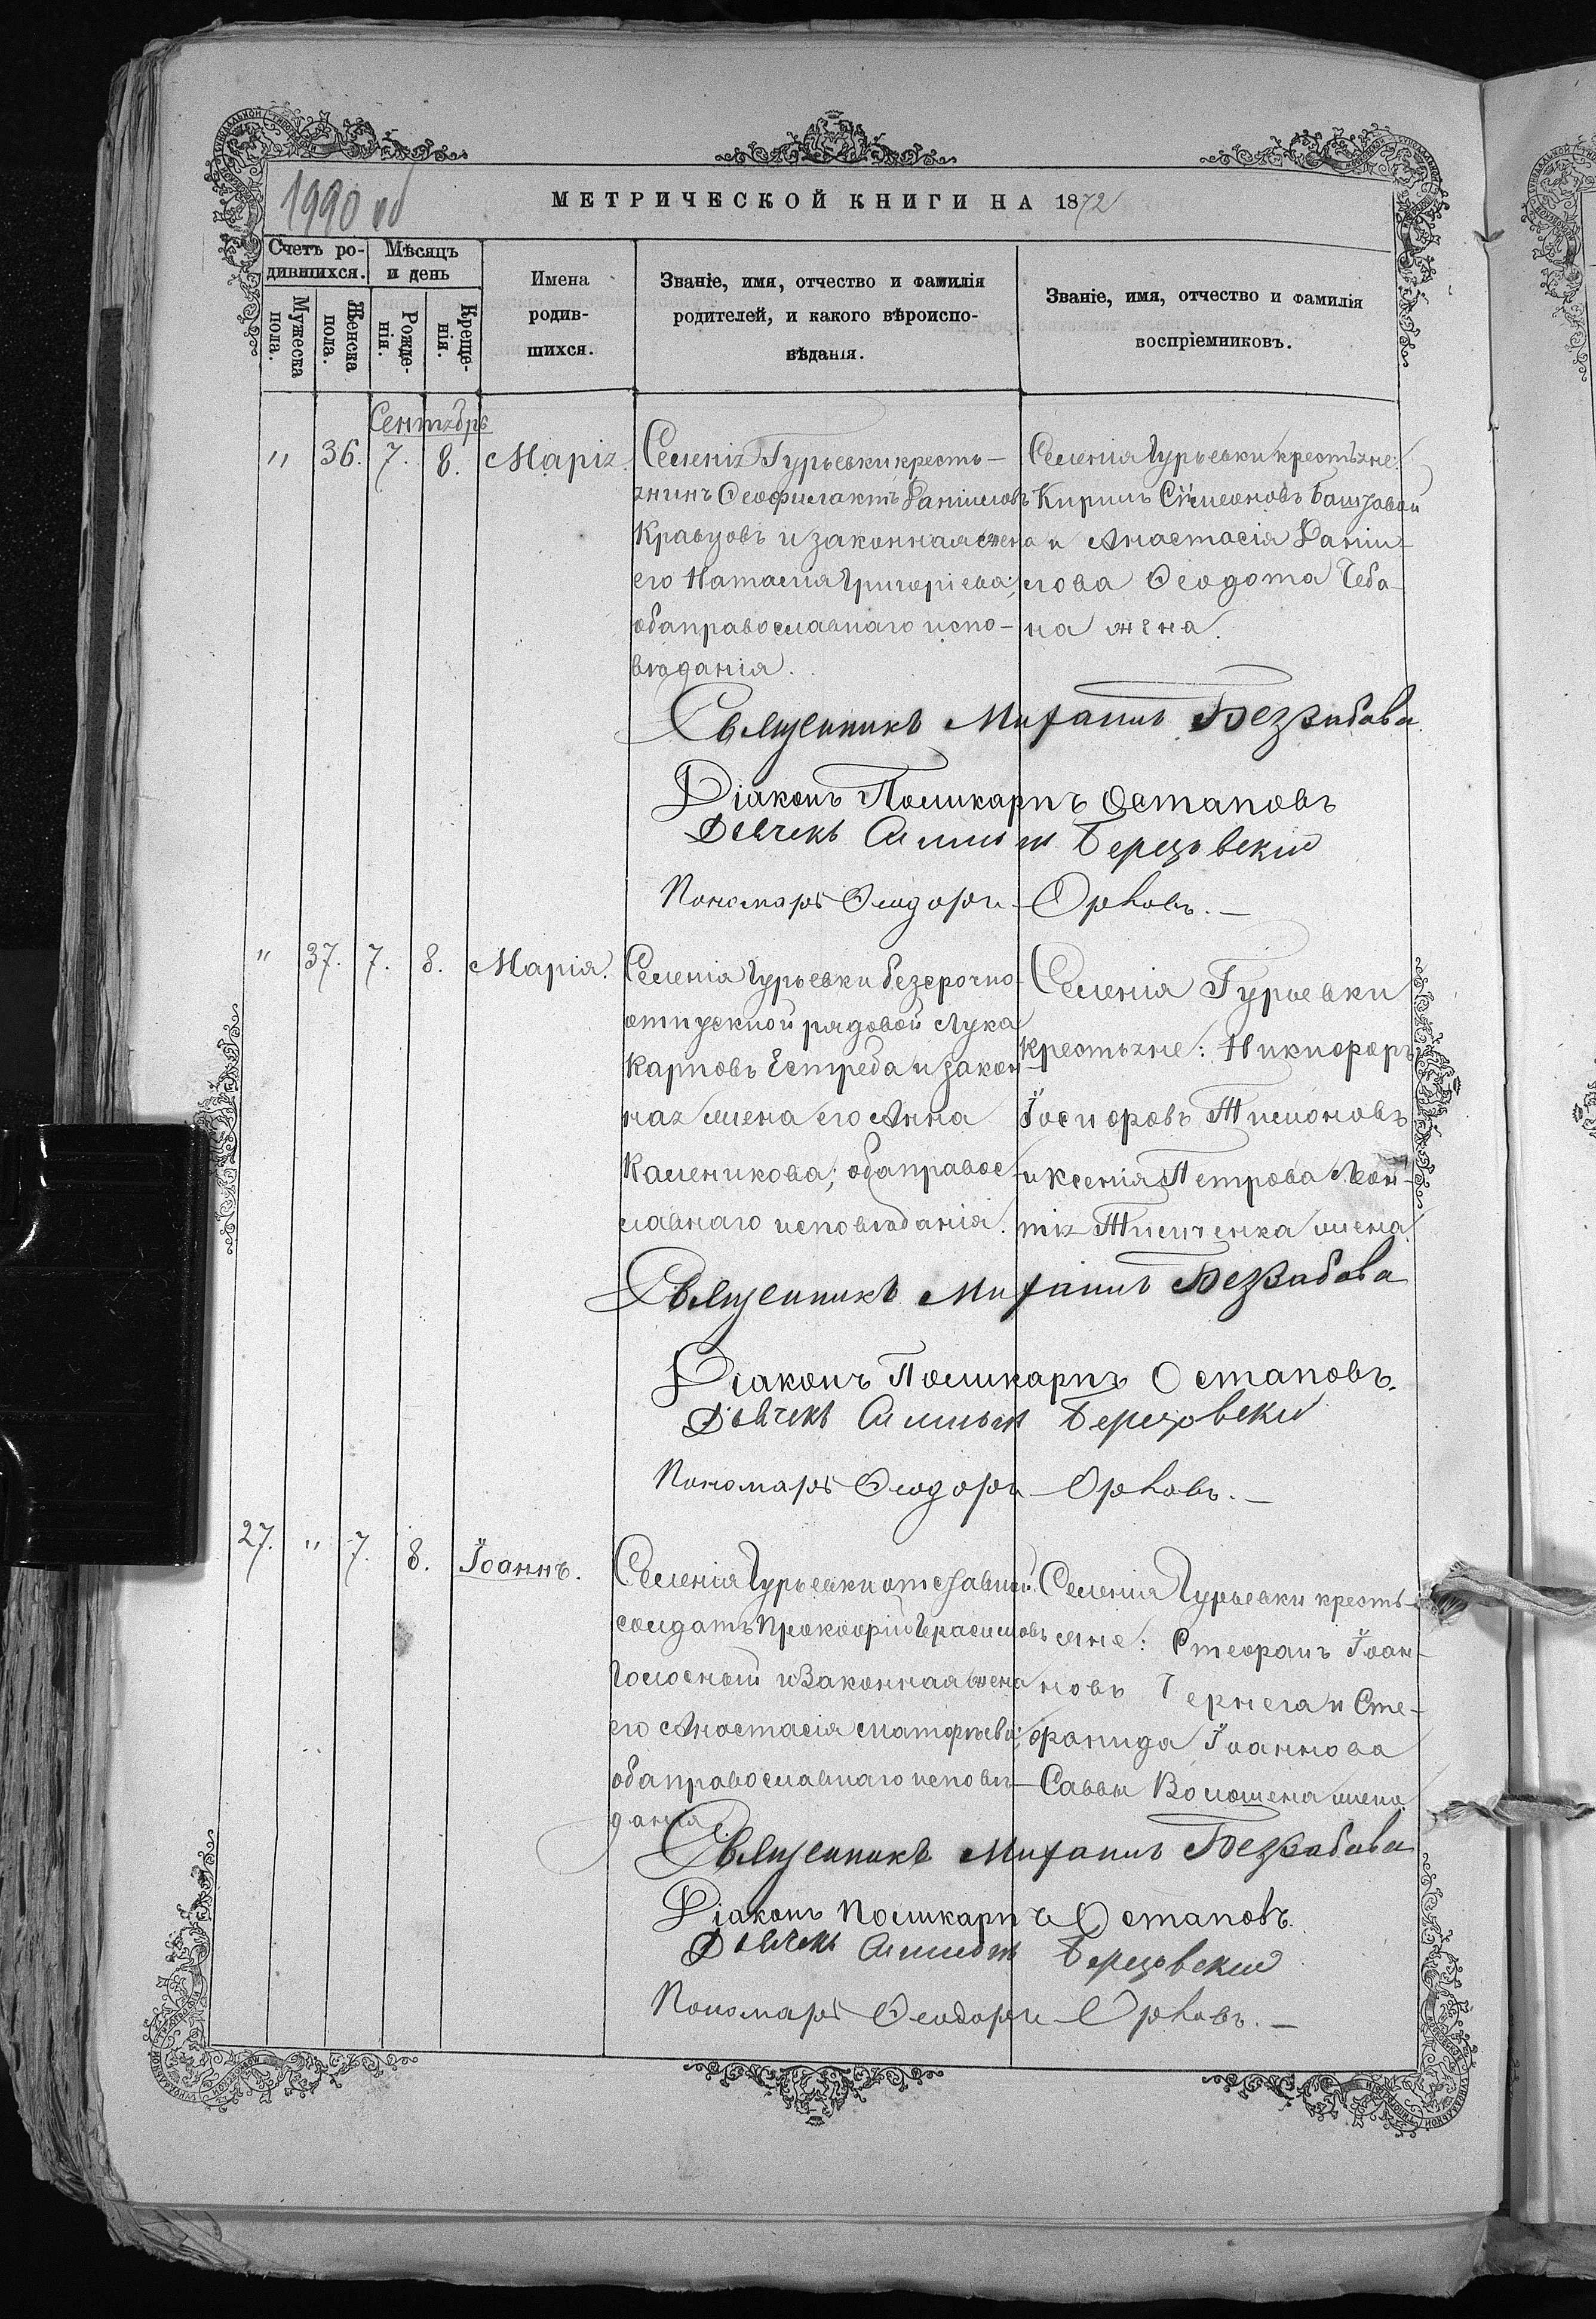 1990 об
МЕТРИЧЕСКОЙ КНИГИ НА 1872
Счетъ ро-
дившихся.
Мѣсяцъ
и день
Мужеска
пола.
Женска
пола.
Рожде-
нія.
Креще-
нія.
Имена
родив-
шихся.
Званіе, имя, отчество и фамилія
родителей, и какого вѣроиспо-
вѣданія.
Званіе, имя, отчество и фамилія
воспріемниковъ.
Сентябрь
" 36. 7. 8. Марія.
Селенія Гурьевки кресть-
янинъ Ѳеофилактъ Даніиловъ
Кравцовъ и законная жена
его Наталия Григоріева;
оба православнаго испо-
вѣданія.
Селенія Гурьевки крестьяне:
Кирилъ Сѵмеоновъ
и Анастасія Даніи-
лова Ѳеодота Чеба-
на жена.
Священникъ Михаилъ Беззабава
Діаконъ Поликарпъ Остаповъ
Дьячекъ Березовскій
Пономарь Ѳеодоръ Орловъ.—
" 37. 7. 8. Марія.
Селенія Гурьевки безсрочно-
отпускной рядовой Лука
Карповъ Естреба и закон-
ная жена его Анна
Каленикова; оба правос-
лавнаго исповѣданія.
Селенія Гурьевки
крестьяне: Никифоръ
Іосифовъ Тимоновъ
и Ксенія Петрова Леон-
тія жена.
Священникъ Михаилъ Беззабава
Діаконъ Поликарпъ Остаповъ.
Дьячекъ Березовскій
Пономарь Ѳеодоръ Орловъ.—
27. " 7. 8. Іоаннъ.
Селенія Гурьевки отставный
солдатъ Прокофій Герасимовъ
Голосный и законная жена
его Анастасія Матфѣева;
оба православнаго исповѣ-
данія.
Селенія Гурьевки кресть-
яне: Стефанъ Іоан-
новъ Чернега и Сте-
фанида Іоаннова
Саввы Волошена жена.
Священникъ Михаилъ Беззабава
Діаконъ Поликарпъ Остаповъ.
Дьячекъ Березовскій
Пономарь Ѳеодоръ Орловъ.—